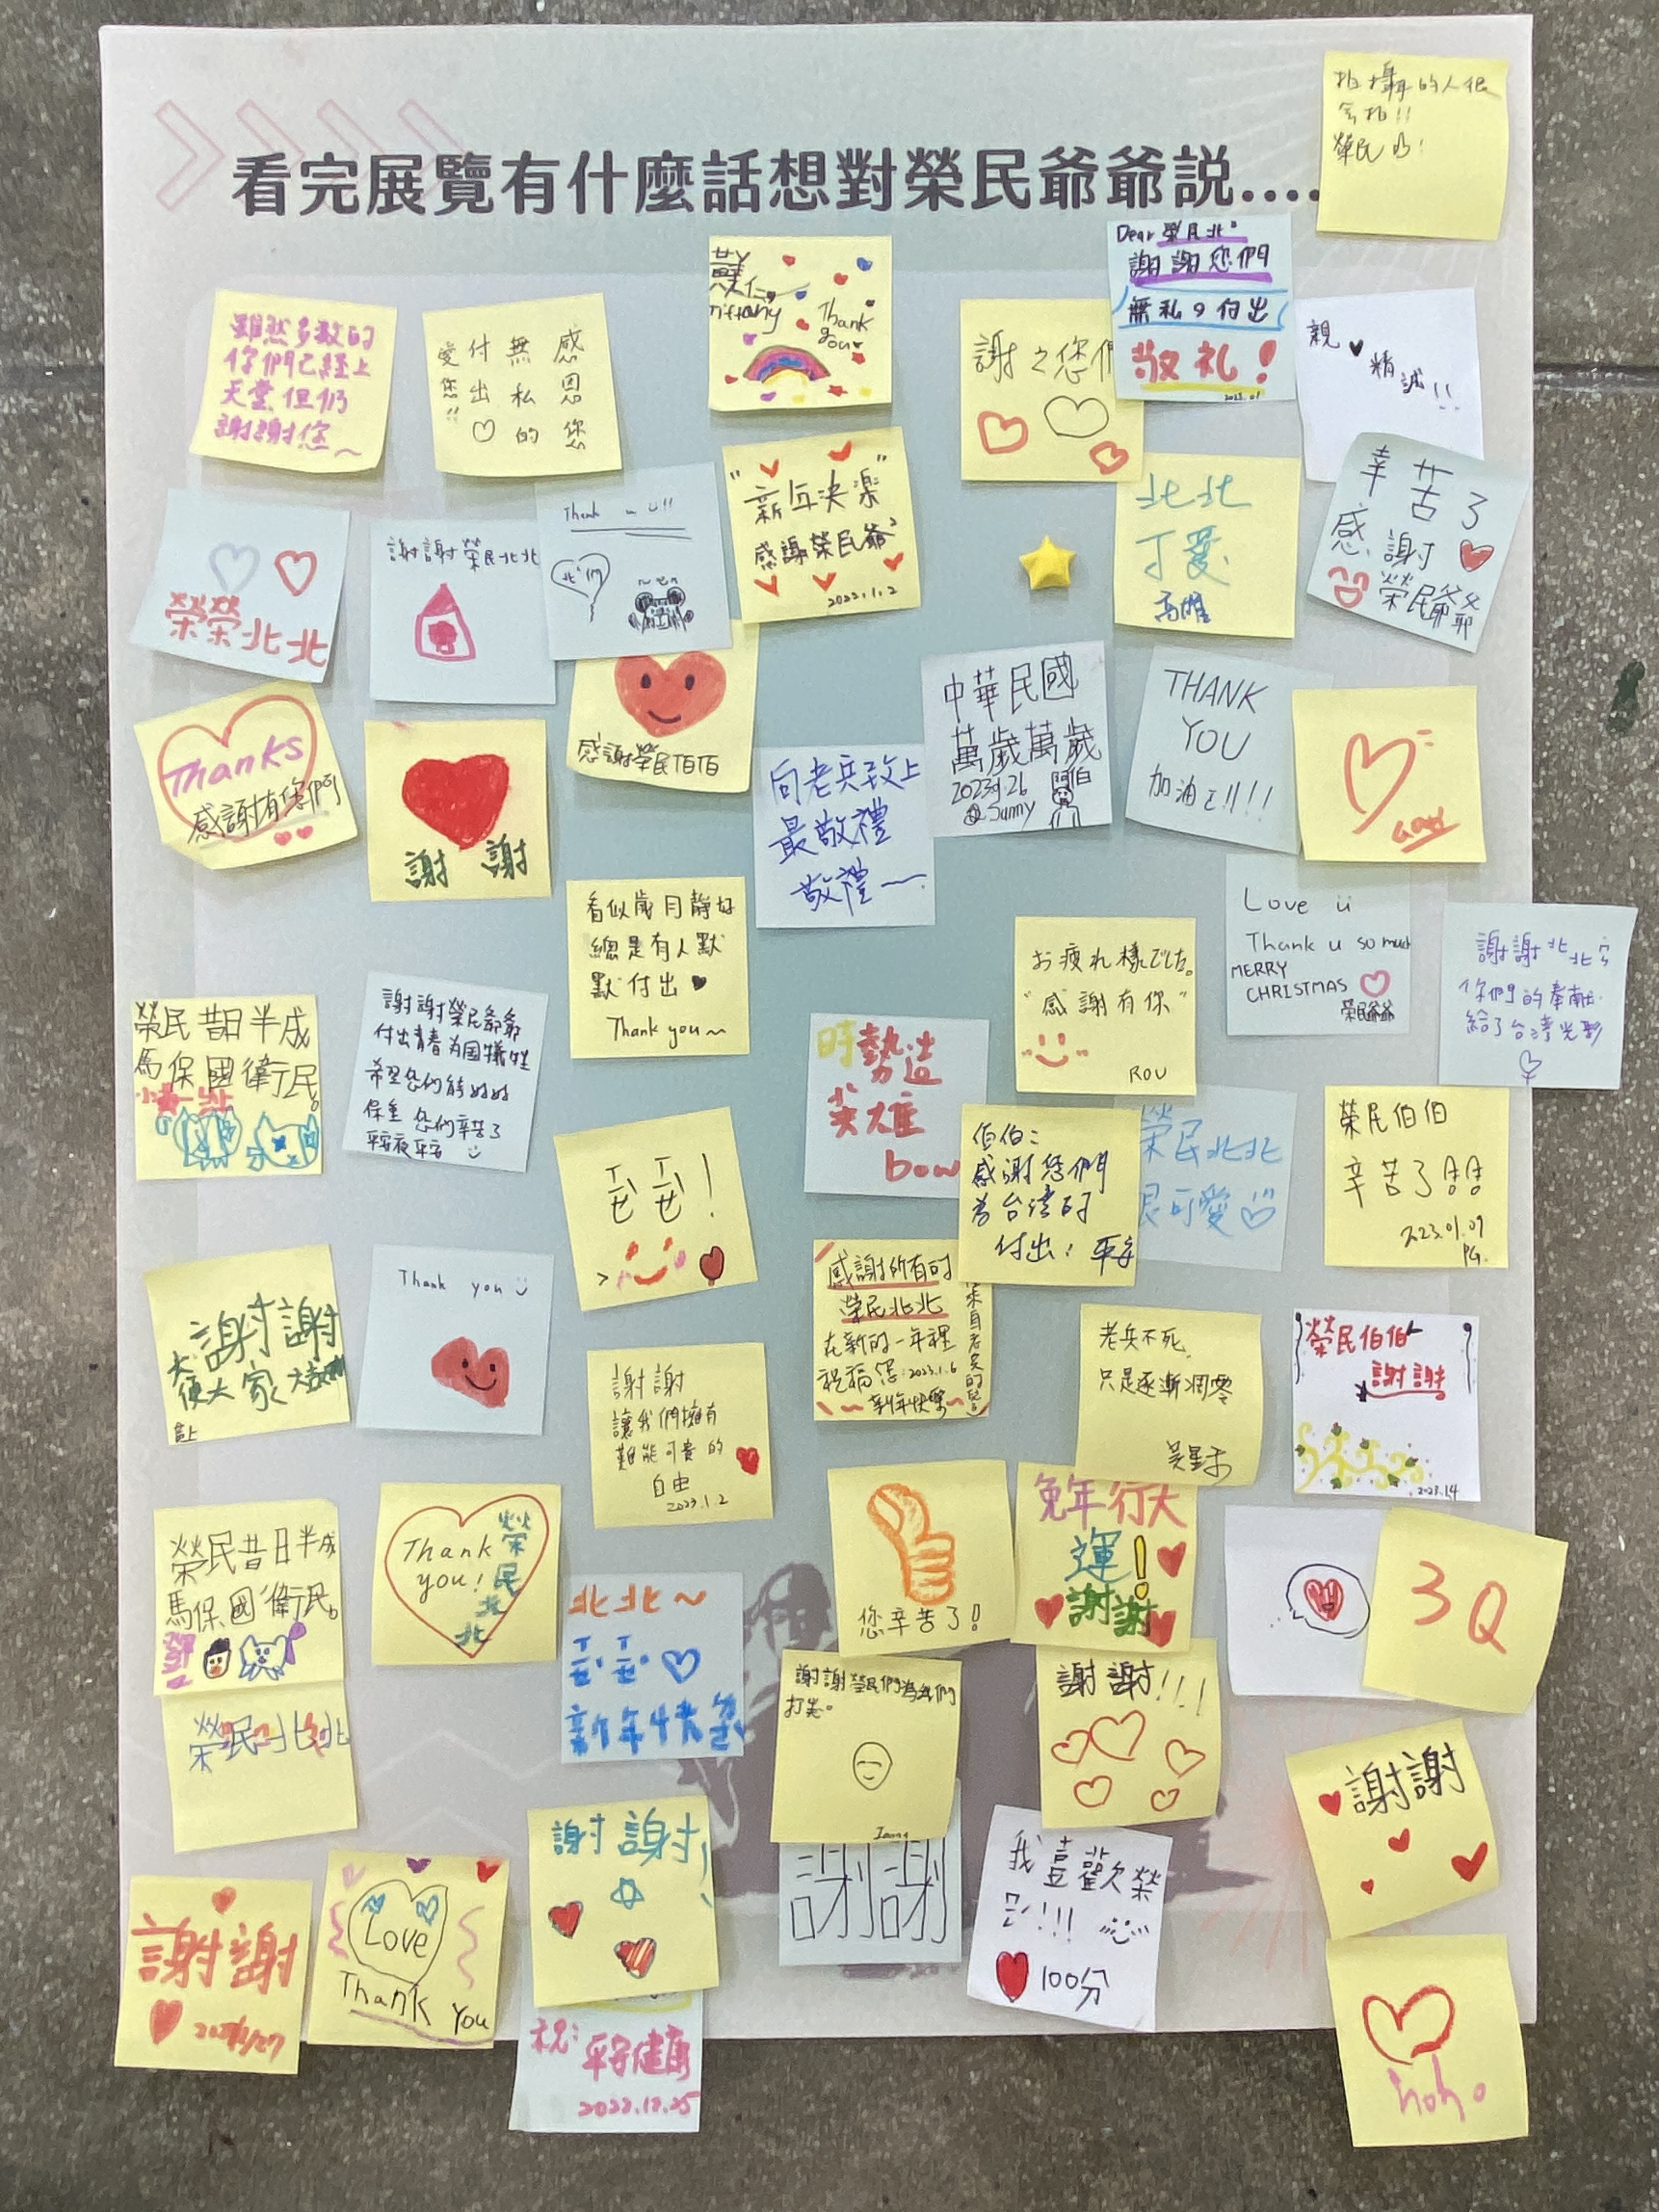 看完展覽有什麼話想對榮民爺爺説....
拍攝的人很
會拍!!
榮民的!
Tiffany
Thank
you
Dear 榮民北²
謝謝您們
無私的付出
敬礼!
2023.01
雖然多數的
你們已經上
天堂但仍
謝謝您~
感恩您
無私的
付出♡
愛您!!
謝之您們
親♥精誠!!
榮榮北北
謝謝榮民北北
Thank u U!!
"新年決樂"
感謝榮民爺²
2022.1.2
北北
丁愛
高雄
辛苦了
感謝
榮民爺爺
Thanks
感謝有您們
謝 謝
感謝榮民伯伯
向老兵致上
最敬禮
敬禮一
中華民國
萬歲萬歲
2023.1.26
@Sunny
THANK
YOU
加油!!!!
看似歲月靜好
總是有人默
默付出♥
Thank you~
お疲れ様でした。
"感謝有你"
ROU
Love ü
Thank u so much
MERRY
CHRISTMAS
榮民爺爺
謝謝北北
你們的奉獻
給了台湾光彩
榮民昔日半成
馬保國衛民。
謝謝榮民爺爺
付出青春为国犧牲
希望您们能好好
保重 您们辛苦了
平安夜平安
時勢造
英雄
bow
伯伯:
感謝您們
為台湾的
付出! 平安
榮民北北
很可愛
榮民伯伯
辛苦了
2023.01.09
PG.
丂ㄜ丂ㄜ!
謝謝
大家
Thank you
謝謝
讓我們擁有
難能可貴的
自由
2023.1.2
感謝所有的
榮民北北
在新的一年裡
祝福您:2023.1.6
新年快樂
老兵不死,
只是逐漸凋零
榮民伯伯
謝謝
2023.1.4
榮民昔日半成
馬保國衛民。
Thank
you!
榮民北北
北北~
新年快樂
您辛苦了!
兔年行大
運!
謝謝
3Q
榮民北北
謝謝榮民們為我們
打先。
謝謝!!!
謝謝
謝謝
Love
Thank You
謝謝!
祝:平安健康
2022.12.25
謝謝
我喜歡榮
民!!!
100分
hoho